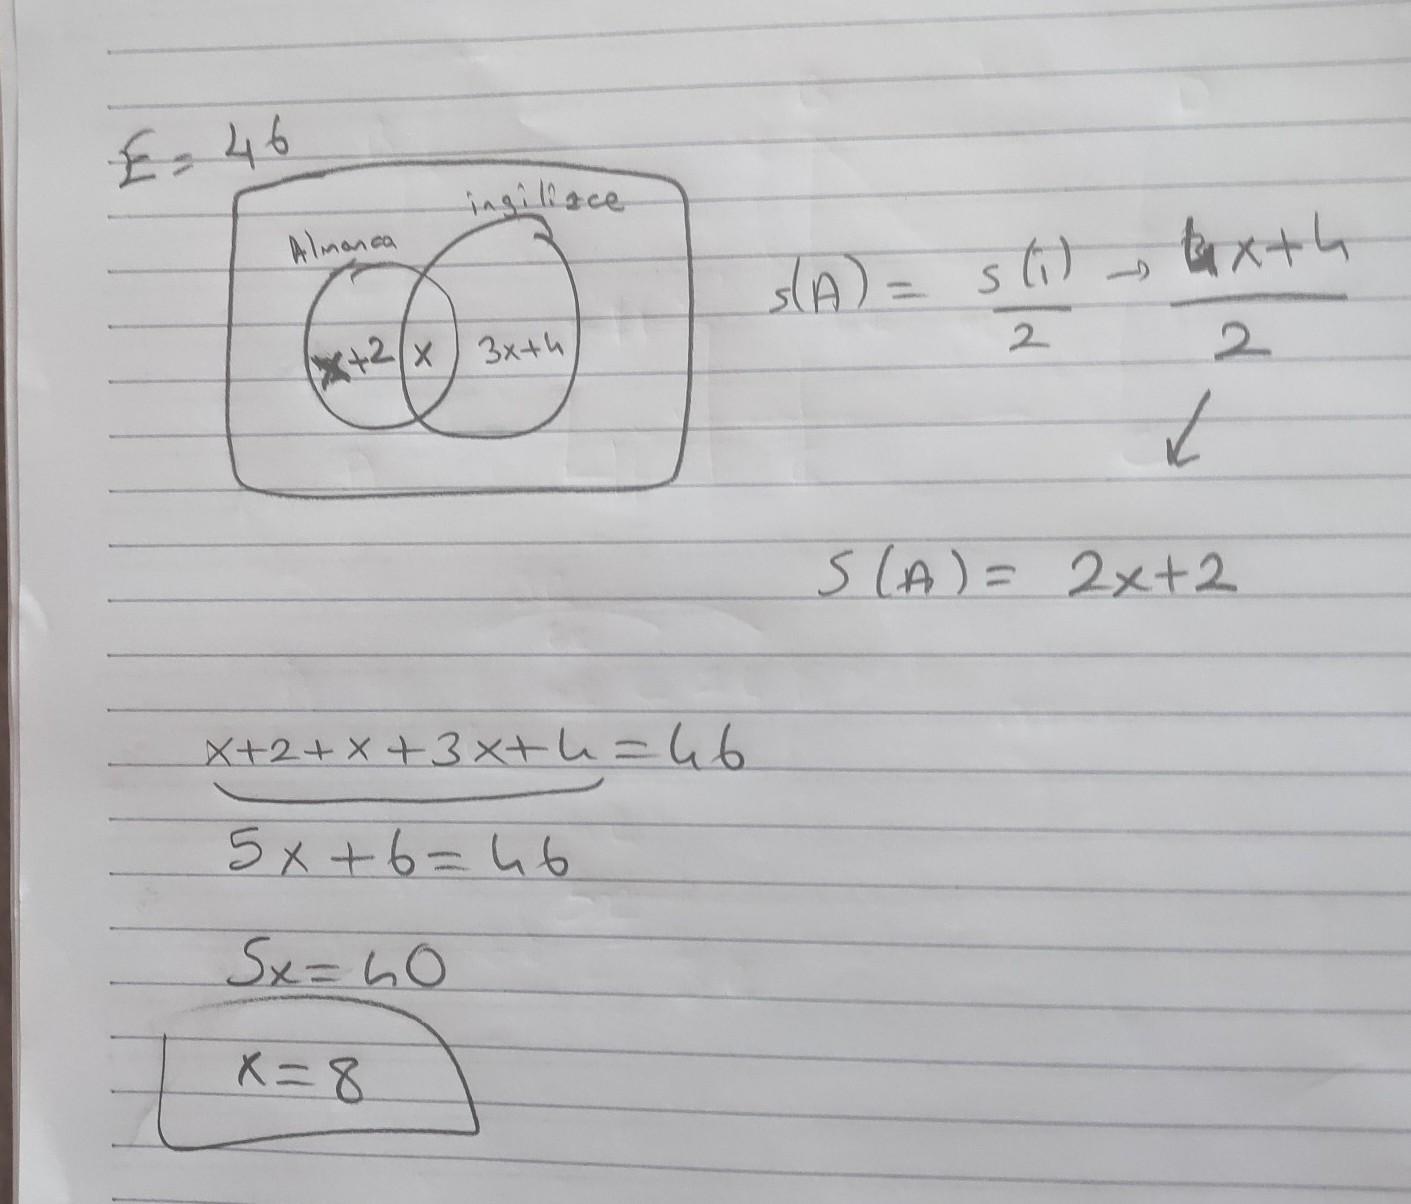 E = 46
ingilizce
Almanca
x+2 x 3x+4
s(A) = s(i)/2 → 4x+4/2
↙
S(A) = 2x+2
x+2+x+3x+4=46
5x+6=46
5x=40
x=8